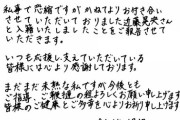 私事で恐縮ですが かねてよりお付き合い
させていただいておりました近藤晃央さん
と入籍いたしましたことをご報告させて
いただきます。
いつも応援し支えていただいている
皆様には心より感謝しております。
まだまだ未熟な私ですが今後とも
ご指導、ご鞭撻の程よろしくお願い申し上げます
皆様のご健康とご多幸を心よりお祈り申し上げます